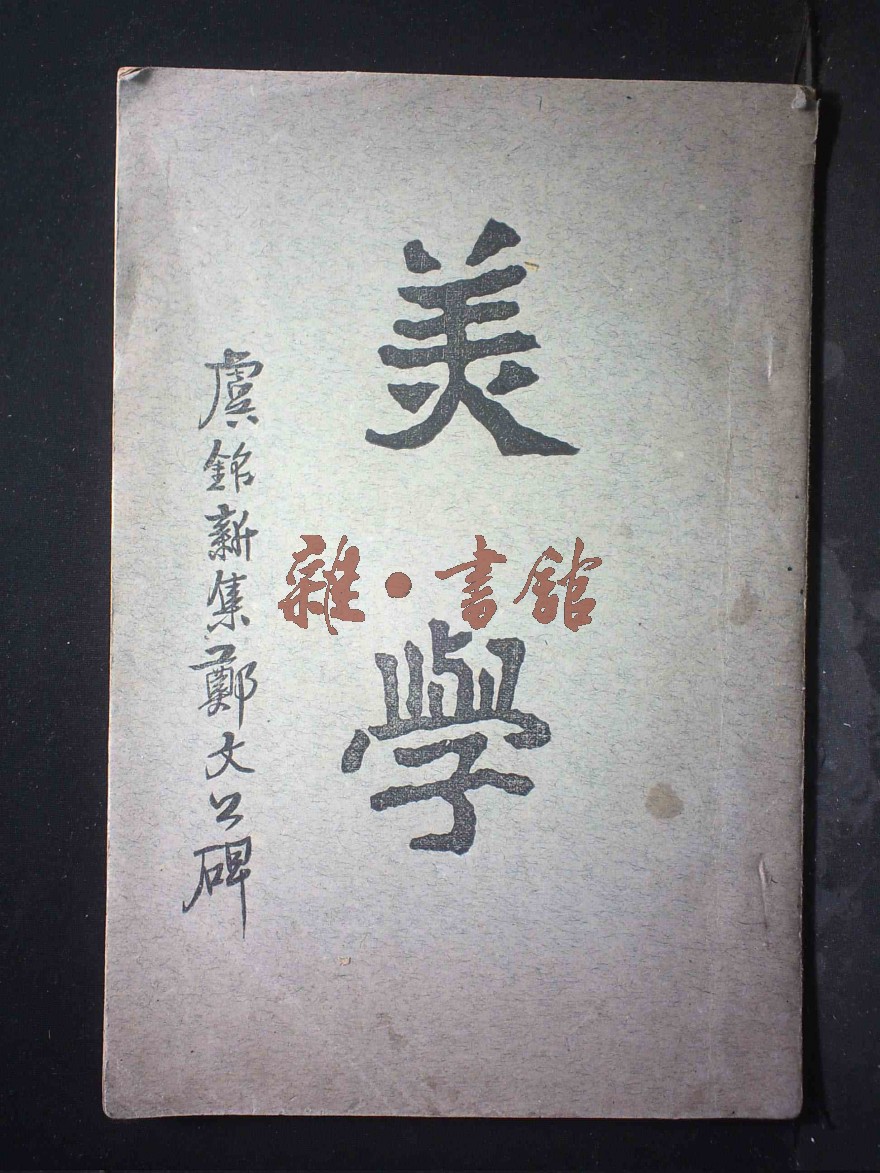 美學
虞銘新集鄭文公碑
雜·書館